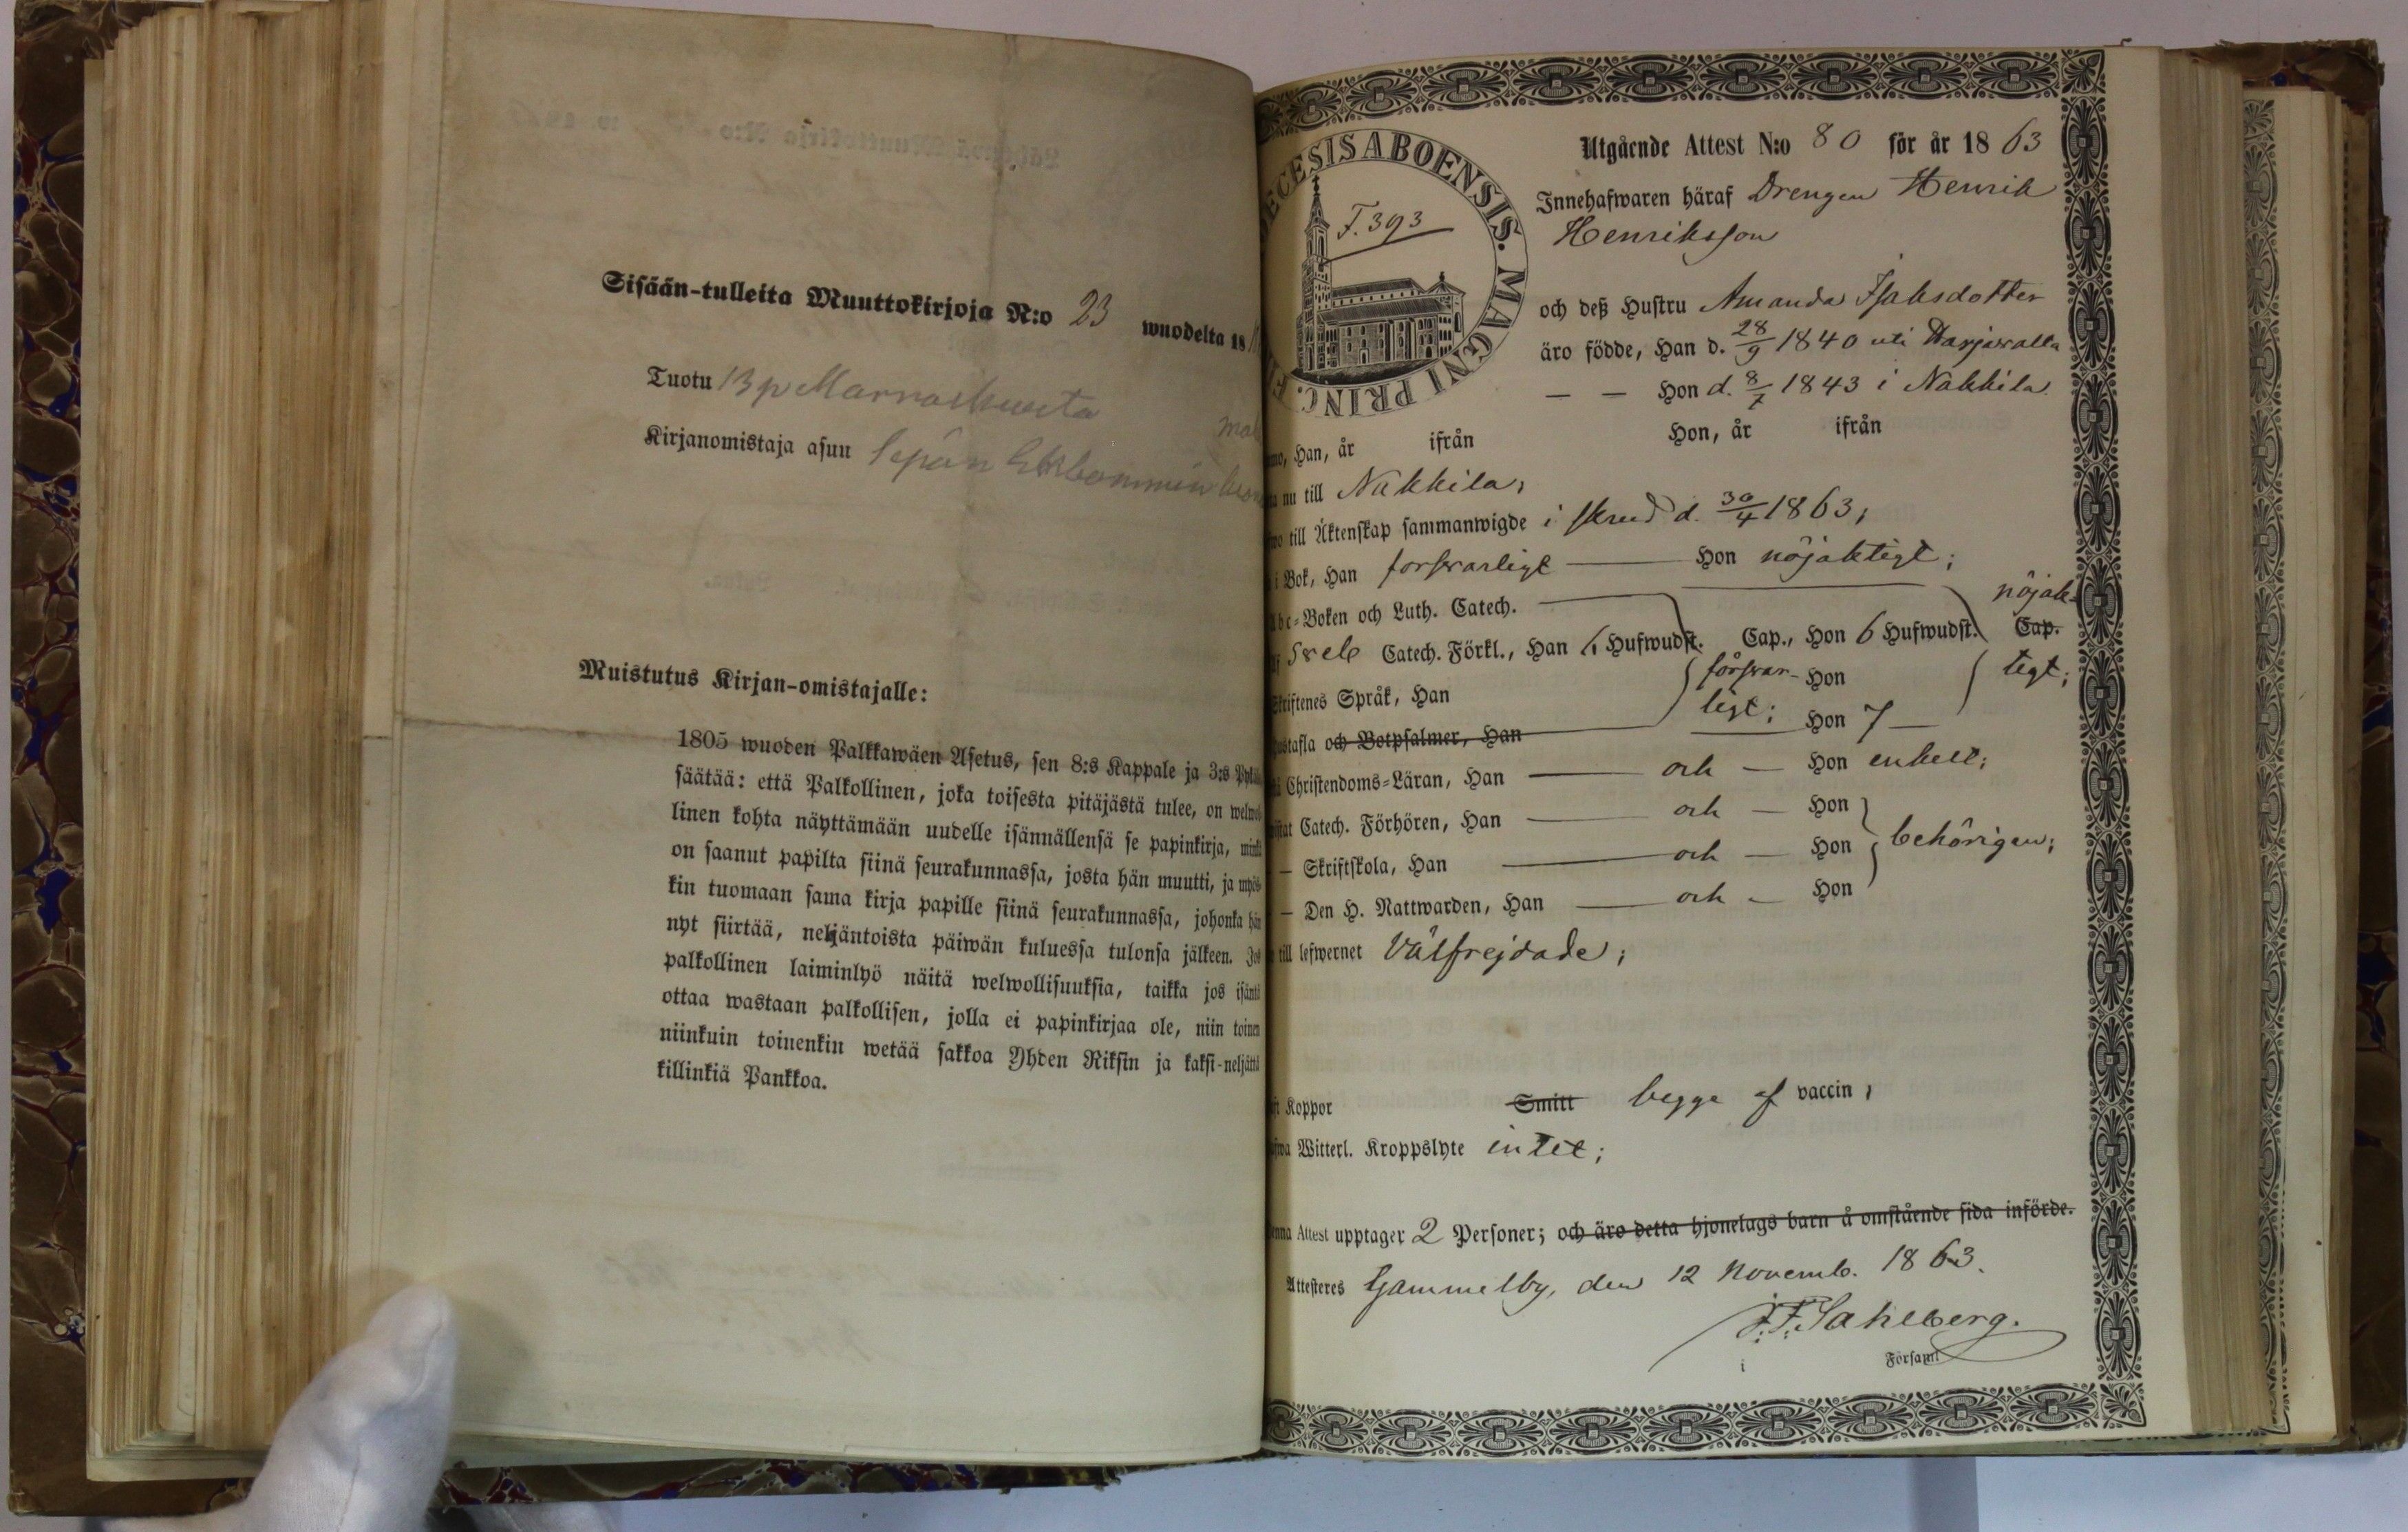 Sisään-tulleita Muuttokirjoja N:o 23 wuodelta 18
Tuotu 13 p Marraskuuta
Kirjanomistaja asuu Sepän
Muistutus Kirjan-omistajalle:
1805 wuoden Palkkawäen Asetus, sen 8:s Kappale ja 3:s
säätää: että Palkollinen, joka toisesta pitäjästä tulee, on welwol
linen kohta näyttämään uudelle isännällensä se papinkirja, minkä
on saanut papilta siinä seurakunnassa, josta hän muutti, ja myös
kin tuomaan sama kirja papille siinä seurakunnassa, johonka hän
nyt siirtää, neljäntoista päiwän kuluessa tulonsa jälkeen. Jos
palkollinen laiminlyö näitä welwollisuuksia, taikka jos isäntä
ottaa wastaan palkollisen, jolla ei papinkirjaa ole, niin toinen
niinkuin toinenkin wetää sakkoa Yhden Riksin ja kaksi-neljättä
killinkiä Pankkoa.
ECESIS ABOENSIS. MAGNI PRINC. F
F. 393
Utgående Attest N:o 80 för år 1863
Innehafwaren häraf Drengen Henrik
Henriksson
och deß Hustru Amanda Isaksdotter
äro födde, Han d. 28/9 1840 uti Harjavalla
— — Hon d. 8/7 1843 i Nakkila
Han, år ifrån Hon, år ifrån
nu till Nakkila,
till Äktenskap sammanwigde i skrud d. 30/4 1863;
i Bok, Han forsvarligt — Hon nöjaktigt;
Abc-Boken och Luth. Catech. nöjak-
Sveb Catech. Förkl., Han 6 Hufwudst. Cap., Hon 6 Hufwudst. Cap.
Skriftenes Språk, Han försvar- Hon tigt;
Hustafla och Botpsalmer, Han ligt; Hon 7 —
Christendoms-Läran, Han — och — Hon enkelt;
Catech. Förhören, Han — och — Hon
— Skriftskola, Han — och — Hon behörigen;
— Den H. Nattwarden, Han — och — Hon
till lefwernet Välfrejdade;
Koppor Smitt begge af vaccin,
Witterl. Kroppslyte intet;
Denna Attest upptager 2 Personer; och äro detta hjonelags barn å omstående sida införde.
Attesteres Gammelby, den 12 Novemb. 1863.
F. Sahlberg.
i Församl